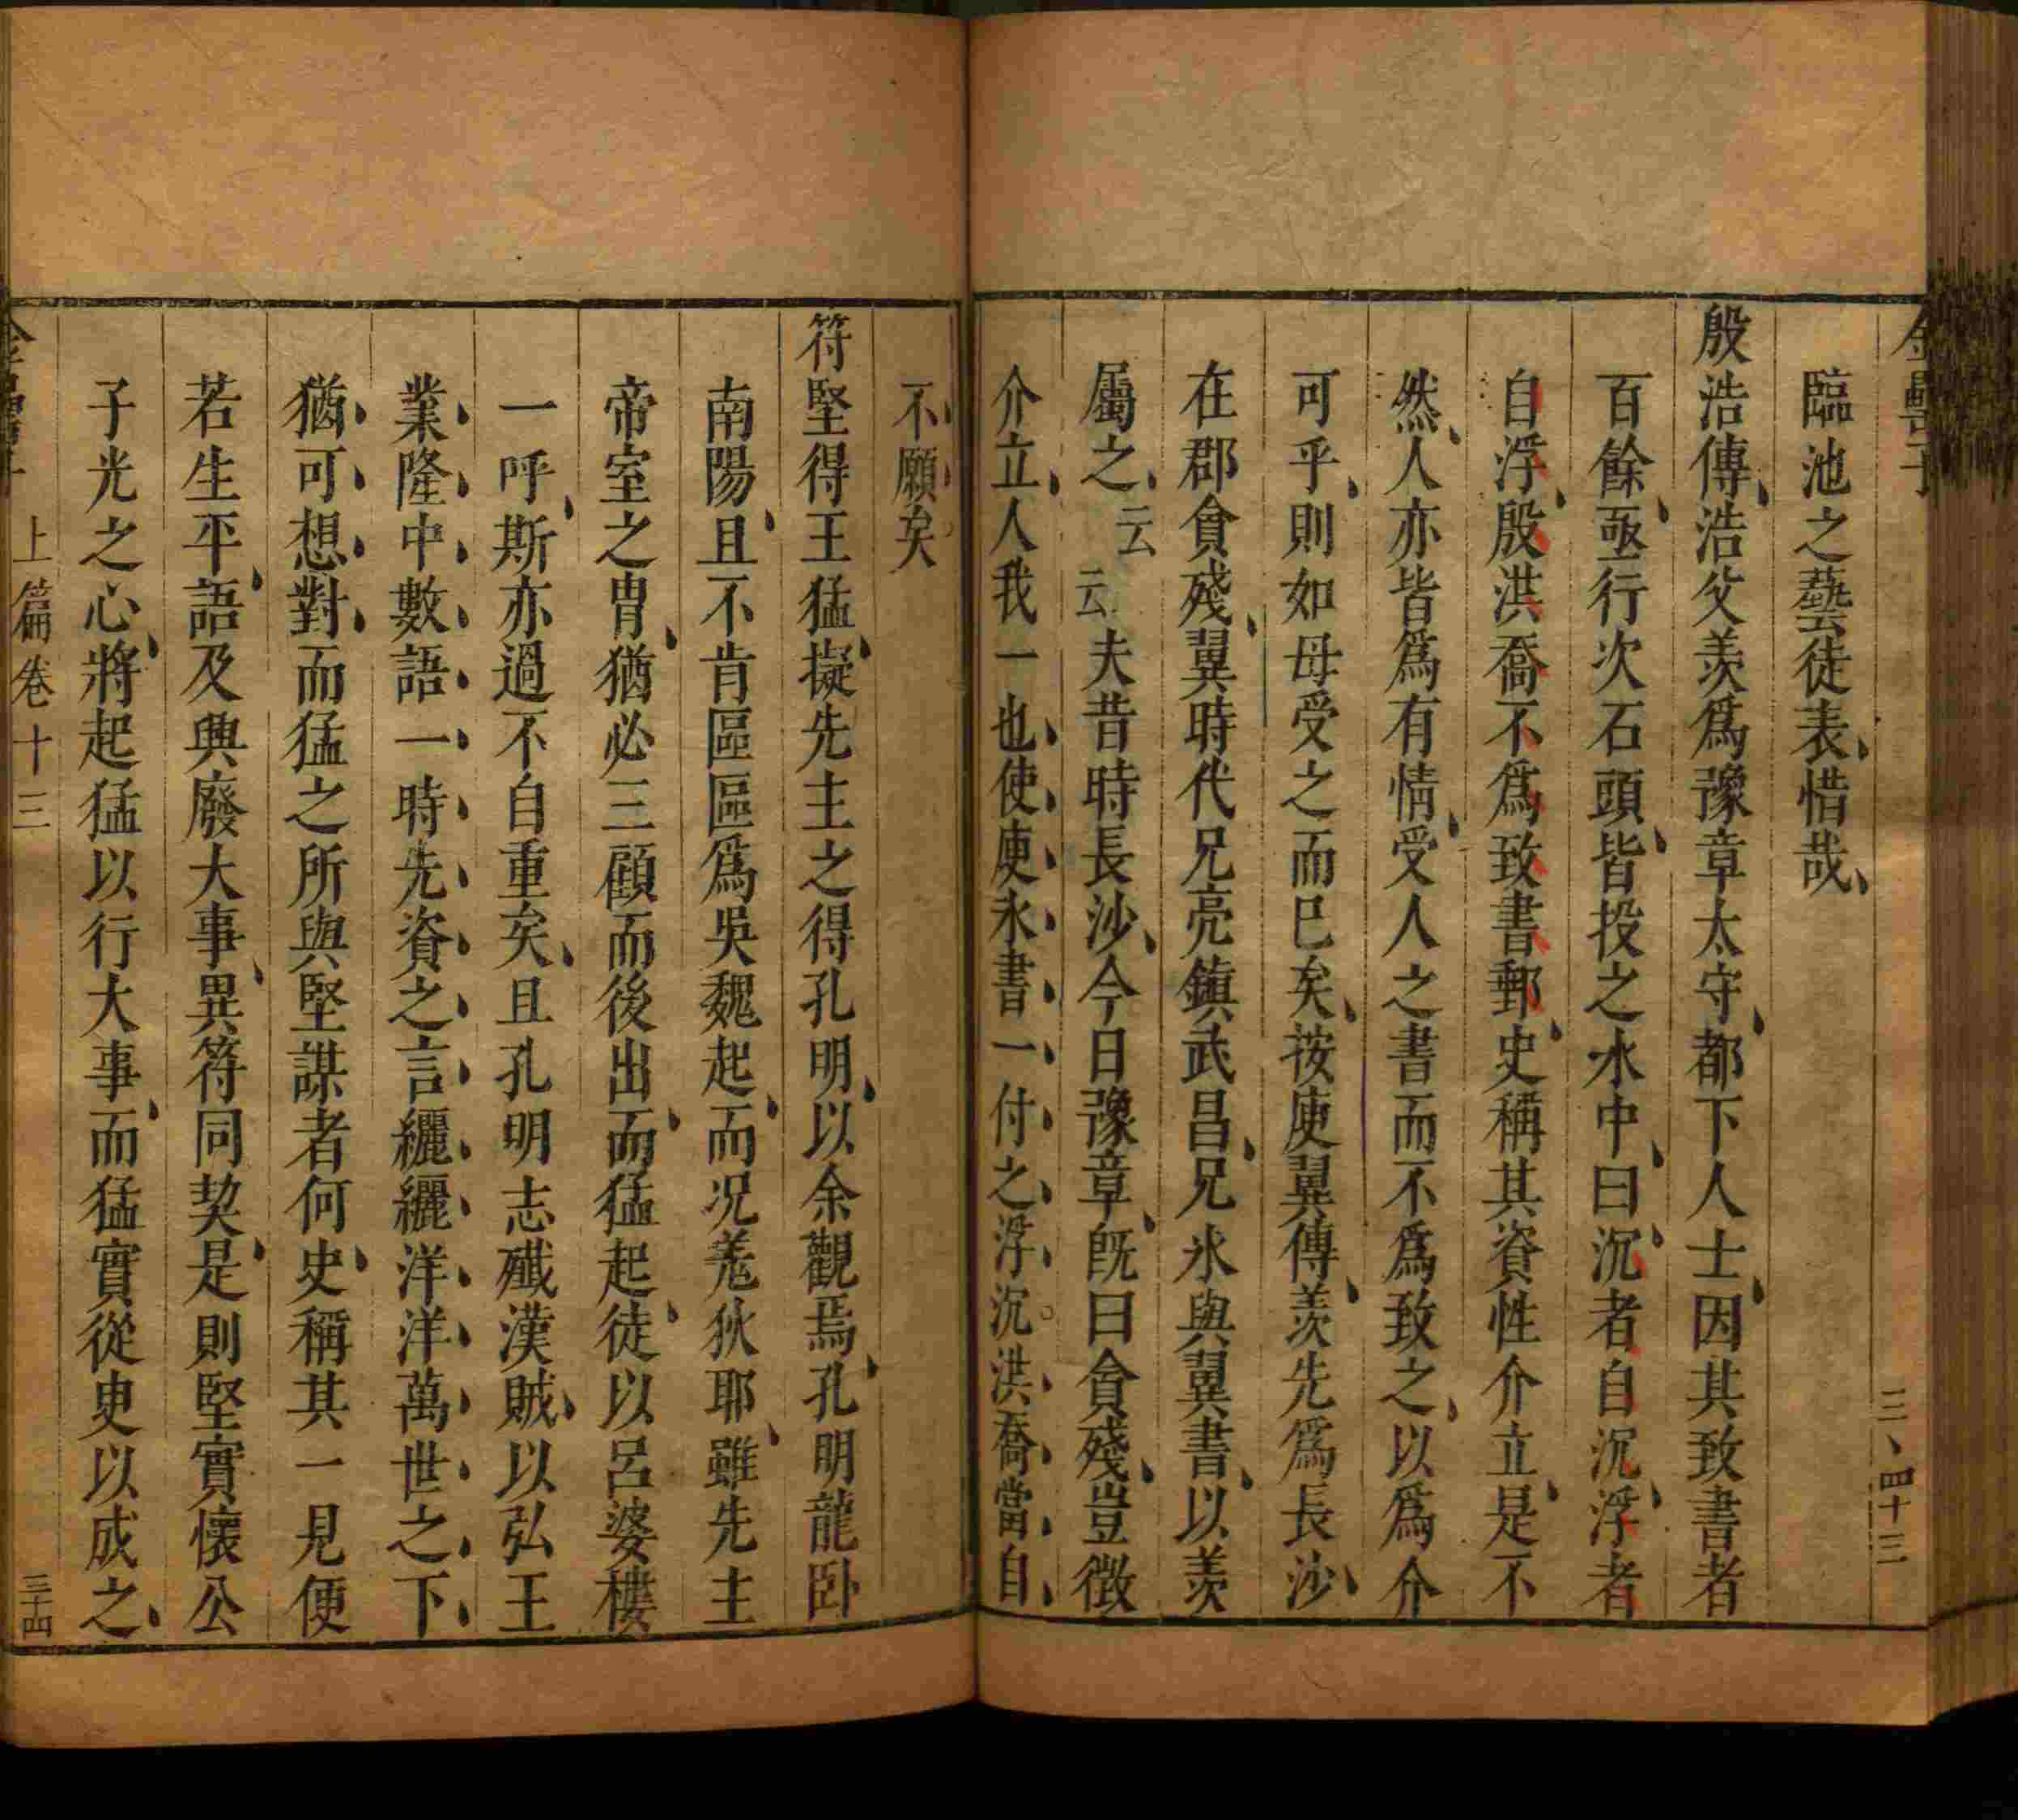 三四十三
臨池之藝徒表惜哉
殷浩傳浩父羨爲豫章太守都下人士因其致書者
百餘亟行次石頭皆投之水中曰沉者自沉浮者
自浮殷洪喬不爲致書郵史稱其資性介立是不
然人亦皆爲有情受人之書而不爲致之以爲介
可乎則如毋受之而已矣按庾翼傳羨先爲長沙
在郡貪殘翼時代兄亮鎮武昌兄氷與翼書以羨
屬之云云夫昔時長沙今日豫章旣曰貪殘豈徴
介立人我一也使庾氷書一付之浮沉洪喬當自
不願矣
符堅得王猛擬先主之得孔明以余觀焉孔明龍卧
南陽且不肯區區爲吳魏起而况羗狄耶雖先主
帝室之胄猶必三顧而後出而猛起徒以呂婆樓
一呼斯亦過不自重矣且孔明志殱漢賊以弘王
業隆中數語一時先資之言纚纚洋洋萬世之下
猶可想對而猛之所與堅謀者何史稱其一見便
若生平語及興廢大事異符同契是則堅實懐公
子光之心將起猛以行大事而猛實從臾以成之
上篇卷十三
三十四